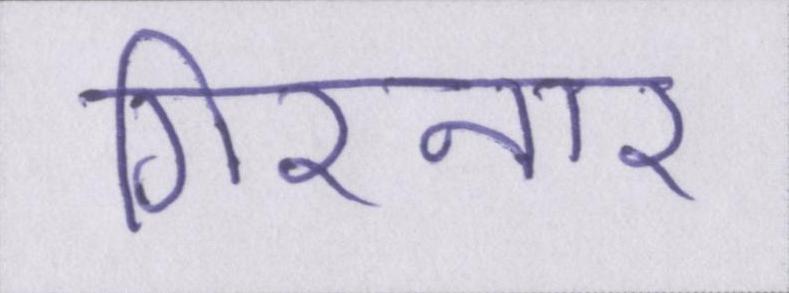 गिरनार